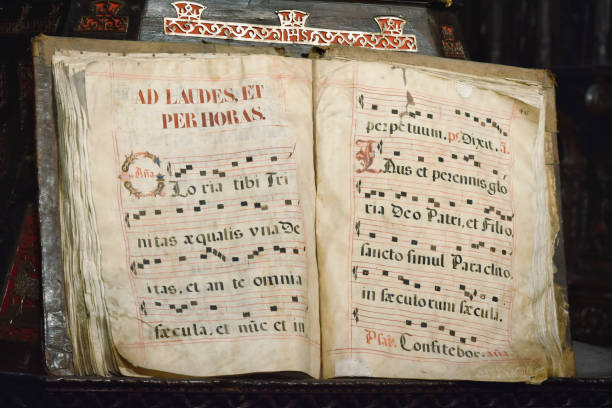 IHS
AD LAUDES, ET
PER HORAS.
Aña
Loria tibi Tri
nitas æqualis vna De
itas, et an te omnia
sæcula, et nūc et in
perpetuum. ps. Dixit. ã.
Laus et perennis glo
ria Deo Patri, et Filio,
sancto simul Paraclito,
in sæculorum sæcula.
Psal. Confitebor. aña